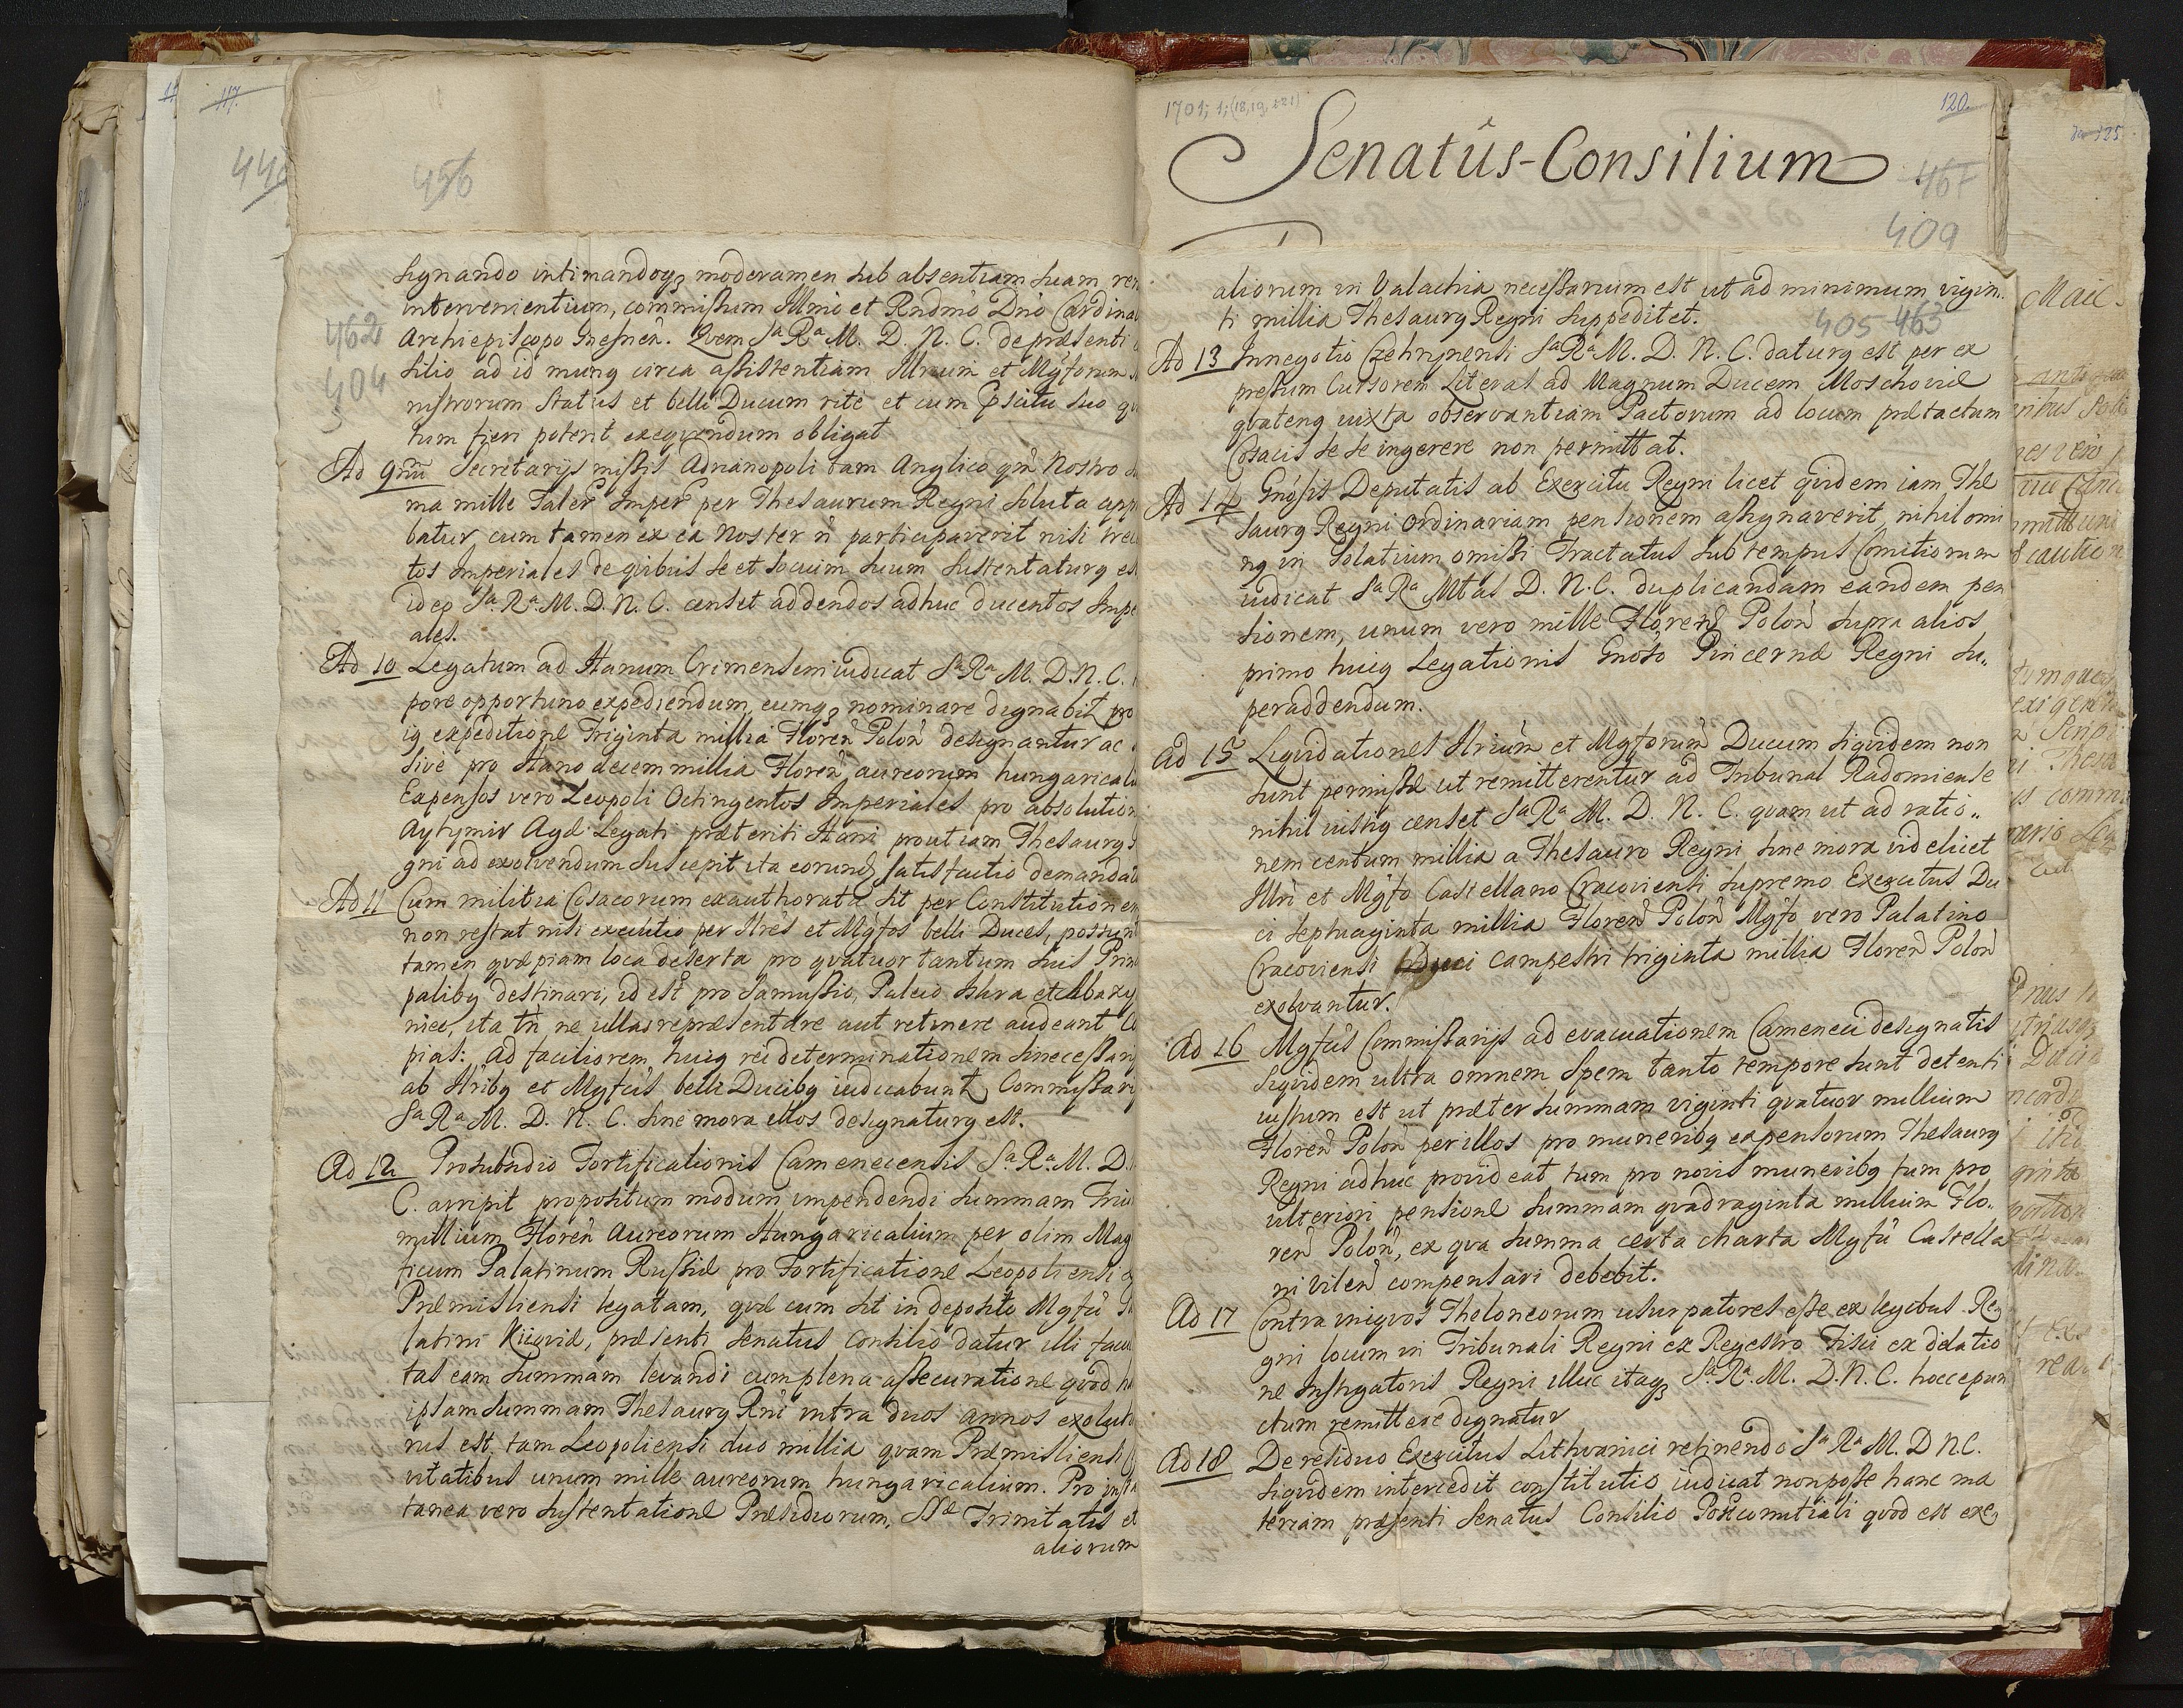 117.
456
462
404
signando intimandoqz moderamen sub absentiam suam
intervenientium, commissum Illmo et Rndmo Dno Cardinal
Archiepiscopo Gnesnen. Quem Sa Ra M. D. N. C. de præsenti
silio ad id munq circa assistentiam Illrium et Mgforum
nistrorum Status et belli Ducum rite et cum scitu suo
tum fieri poterit exeqvendum obligat
Ad 9num Secretarijs missis Adrianopoli tam Anglico qm Nostro
ma mille Taler Imper per Thesaurum Regni soluta app
batur, cum tamen ex ea Noster n participaverit nisi trec
tos Imperiales de qvibus se et socium suum sustentaturq es
ideo Sa Ra M. D. N. C. censet addendos adhuc ducentos Impe
ales.
Ad 10 Legatum ad Hanum Crimensem iudicat Sa Ra M. D. N. C.
pore opportuno expediendum, eumqz nominare dignabit pro
iq expeditione Triginta millia Floren Polon designantur ac
sive pro Hano decem millia Floren aureorum hungarical
Expensos vero Leopoli Octingentos Imperiales pro absolution
Aytymir Agæ Legati præteriti Hani prout iam Thesaurq
gni ad exolvendum suscepit ita eorund satisfactio demandat
Ad 11 Cum militia Cosacorum exauthorata sit per Constitutionem
non restat nisi executio per Illres et Mgfos belli Duces, possunt
tamen qvæpiam loca deserta pro qvatuor tantum suis Prin
palibq destinari, id est pro Samussio, Paleio Iskra et Abazy
niec, ita tn ne ullas repræsentare aut retinere audeant Co
pias: ad faciliorem huiq rei determinationem si necessarij
ab Illribq et Mgfcis belli Ducibq iudicabunt Commissarij
Sa Ra M. D. N. C. sine mora illos designaturq est.
Ad 12 Pro subsidio Fortificationis Camenecensis Sa Ra M. D.
C. arripit propositum modum impendendi summam Trium
millium Floren Aureorum Hungaricalium per olim Mag
ficum Palatinum Russiæ pro Fortificatione Leopoliensi
Præmisliensi legatam, qvæ cum sit in deposito Mgfci
latini Kiioviæ, præsenti Senatus Consilio datur illi facul
tas eam summam levandi cum plena assecuratione qvod
ipsam summam Thesaurq Rni intra duos annos exolutu
rus est, tam Leopoliensi duo millia qvam Præmisliensi
vitatibus unum mille aureorum hungaricalium. Pro insta
tanea vero sustentatione Præsidiorum, SSæ Trinitatis et
aliorum
1701; 1; (18, 19, 221)
120
Senatûs-Consilium
467
409
405 463
aliorum in Valachia necessarium est ut ad minimum vigin..
ti millia Thesaurq Regni suppeditet.
Ad 13 In negotio Czehrynensi Sa Ra M. D. N. C. daturq est per ex
pressum Cursorem Literas ad Magnum Ducem Moschoviæ
qvatenq iuxta observantiam Pactorum ad locum prætactum
Cosacis se se ingerere non permittat.
Ad 14 Gnosis Deputatis ab Exercitu Regni licet qvidem iam The
saurq Regni ordinariam pensionem assignaverit, nihilomi
nq in solatium omissi Tractatus sub tempus Comitiorum
iudicat Sa Ra Mtas D. N. C. duplicandam eandem pen
sionem, unum vero mille Floren Polon supra alios
primo huiq Legationis Gnoso Pincernæ Regni su..
peraddendum.
Ad 15 Liqvidationes Illrium et Mgforum Ducum siqvidem non
sunt permissæ ut remitterentur ad Tribunal Radomiense
nihil iustiq censet Sa Ra M. D. N. C. qvam ut ad ratio..
nem centum millia a Thesauro Regni sine mora videlicet
Illri et Mgfo Castellano Cracoviensi Supremo Exercitus Du
ci septuaginta millia Floren Polon Mgfo vero Palatino
Cracoviensi Duci campestri triginta millia Floren Polon
exolvantur.
Ad 16 Mgfcis Commissarijs ad evacuationem Cameneci designatis
siqvidem ultra omnem spem tanto tempore sunt detenti
iustum est ut præter summam viginti qvatuor millium
Floren Polon per illos pro muneribq expensorum Thesaurq
Regni adhuc provideat tum pro novis muneribq tum pro
ulteriori pensione summam qvadraginta millium Flo..
ren Polon, ex qva summa certa charta Mgfci Castella
ni Vilen compensari debebit.
Ad 17 Contra iniqvos Theloneorum usurpatores esse ex legibus Re
gni locum in Tribunali Regni ex Regestro Fisci ex delatio
ne Instigatoris Regni illuc itaqz Sa Ra M. D. N. C. hocce pun
ctum remittere dignatur
Ad 18 De residuo Exercitus Lithvanici retinendo Sa Ra M. D N C.
siqvidem intercedit constitutio iudicat non posse hanc ma
teriam præsenti Senatus Consilio Postcomitiali qvod est exe
125